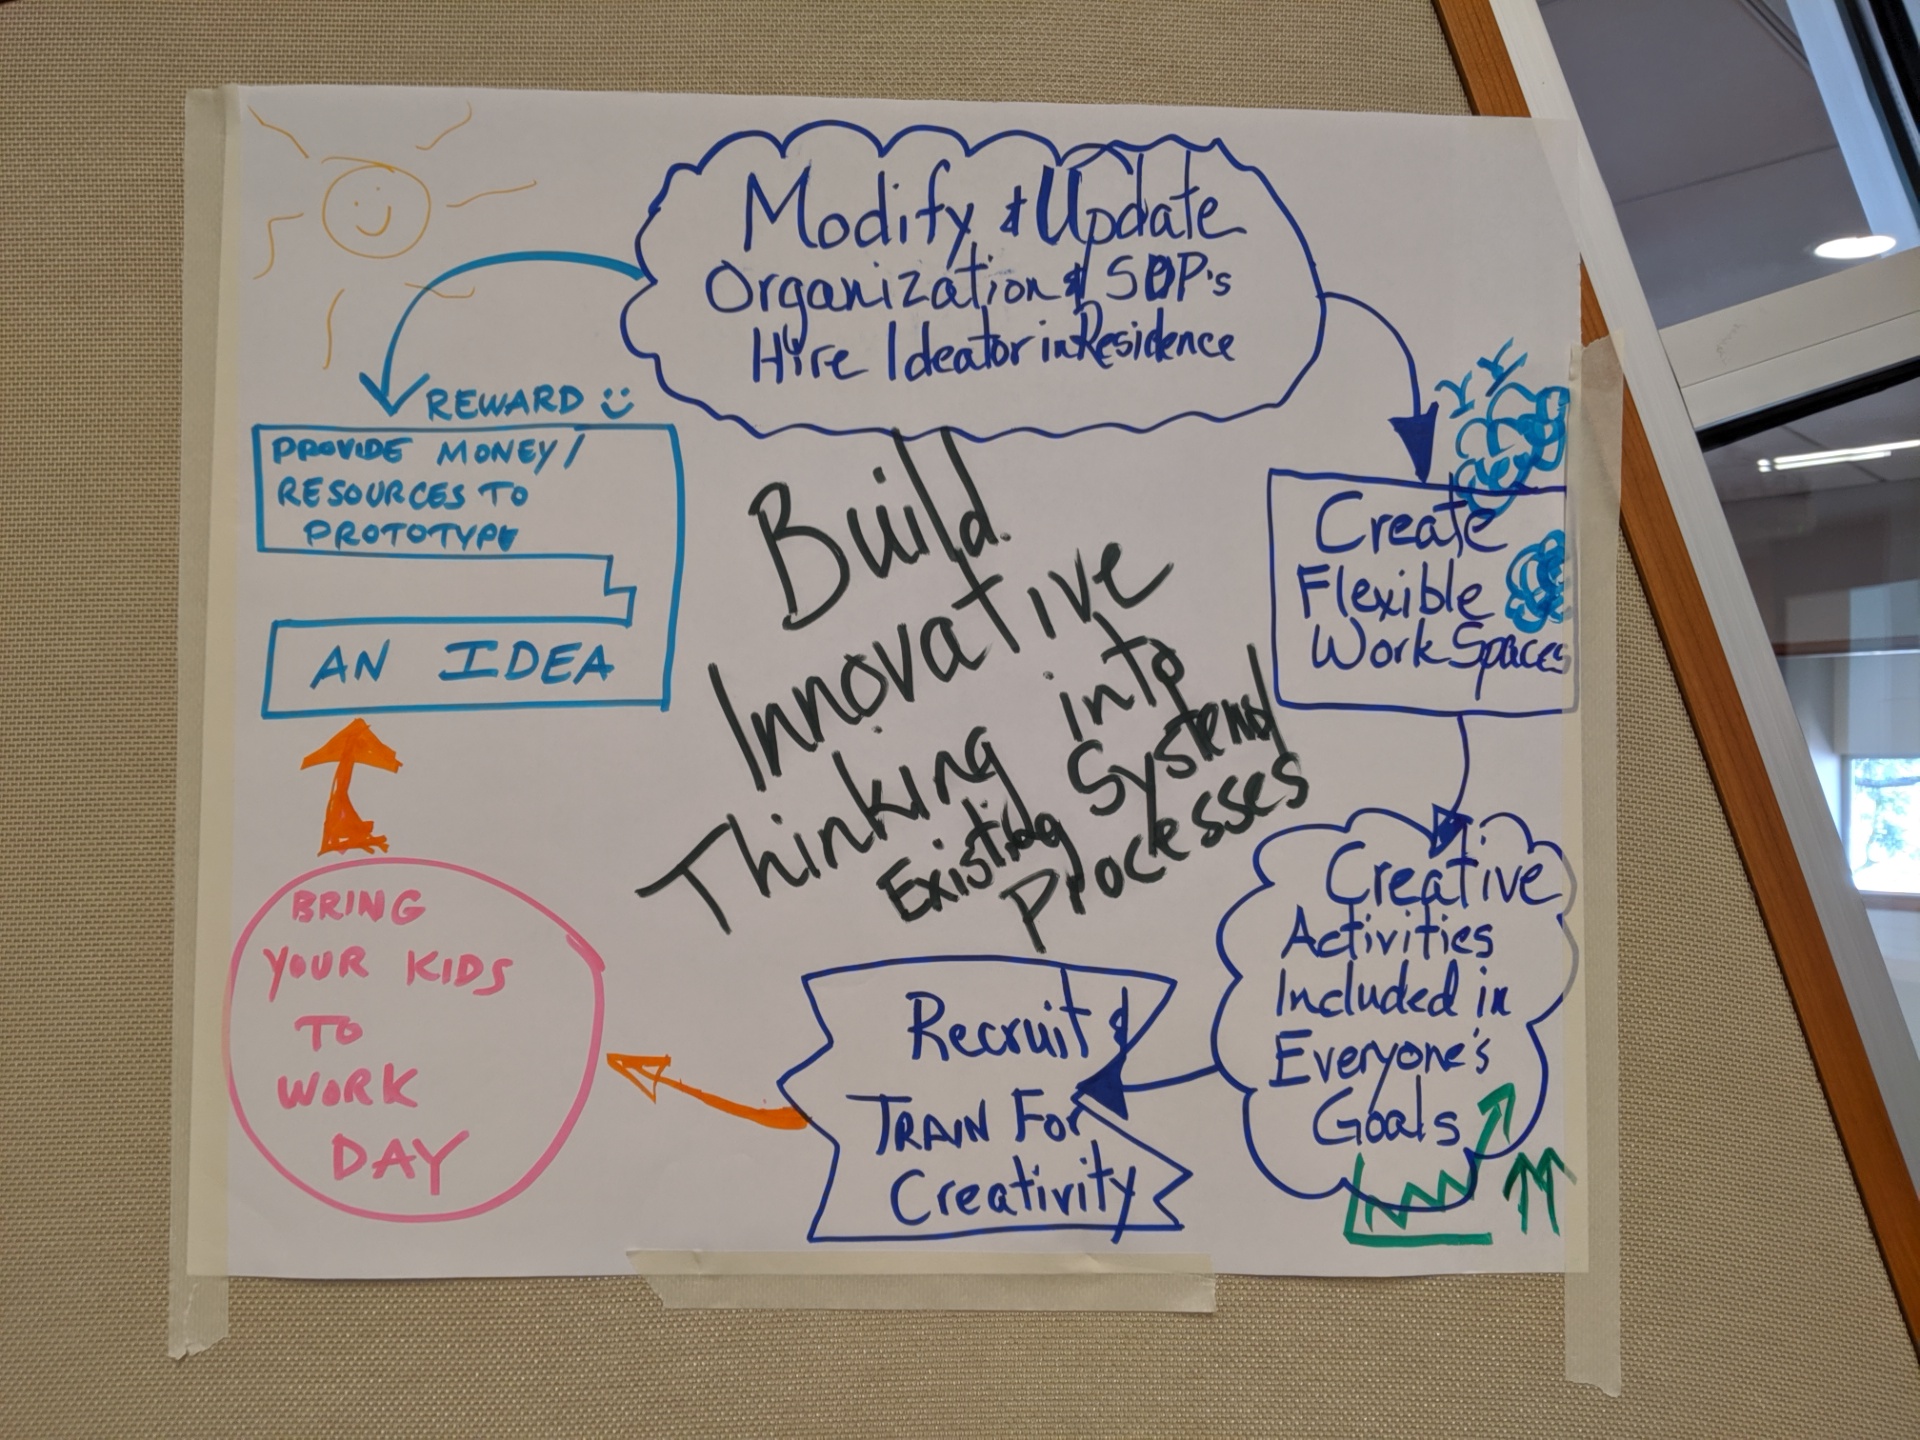 Modify & Update
Organization & SOP's
Hire Ideator in Residence
REWARD
PROVIDE MONEY/
RESOURCES TO
PROTOTYPE
AN IDEA
Build
Innovative
Thinking into
Existing Systems/
Processes
Create
Flexible
Work Spaces
Creative
Activities
Included in
Everyone's
Goals
Recruit &
TRAIN For
Creativity
BRING
YOUR KIDS
TO
WORK
DAY